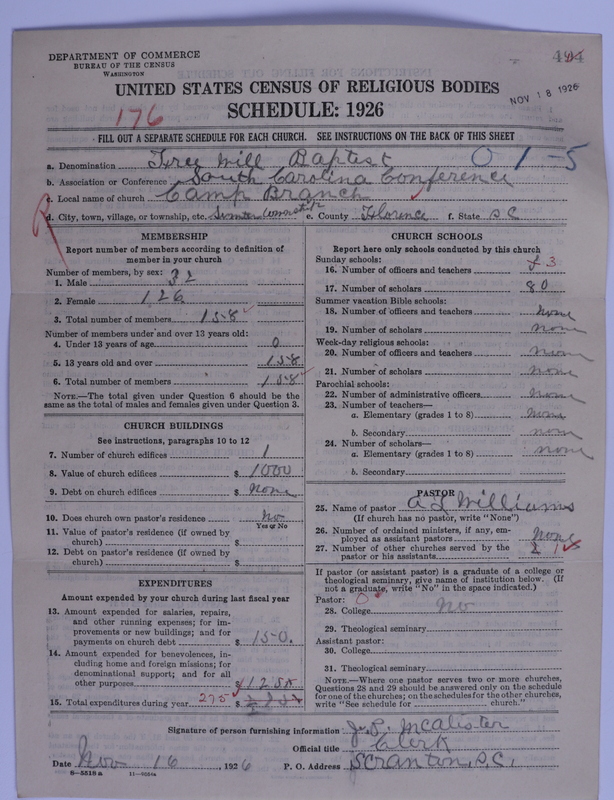 DEPARTMENT OF COMMERCE
BUREAU OF THE CENSUS
WASHINGTON
UNITED STATES CENSUS OF RELIGIOUS BODIES
NOV 18 1926
176
SCHEDULE: 1926
FILL OUT A SEPARATE SCHEDULE FOR EACH CHURCH. SEE INSTRUCTIONS ON THE BACK OF THIS SHEET
a. Denomination Free Will Baptist 01-5
b. Association or Conference South Carolina Conference
c. Local name of church Camp Branch
d. City, town, village, or township, etc. Sumter e. County Florence f. State S C
MEMBERSHIP
Report number of members according to definition of
member in your church
Number of members, by sex:
1. Male 32
2. Female 126
3. Total number of members 158
Number of members under and over 13 years old:
4. Under 13 years of age 0
5. 13 years old and over 158
6. Total number of members 158
NOTE.—The total given under Question 6 should be
same as the total of males and females given under Question 3.
CHURCH BUILDINGS
See instructions, paragraphs 10 to 12
7. Number of church edifices 1
8. Value of church edifices $ 1000
9. Debt on church edifices $ None
10. Does church own pastor's residence No
Yes or No
11. Value of pastor's residence (if owned by
church) $
12. Debt on pastor's residence (if owned by
church) $
EXPENDITURES
Amount expended by your church during last fiscal year
13. Amount expended for salaries, repairs,
and other running expenses; for im-
provements or new buildings; and for
payments on church debt $ 150.
14. Amount expended for benevolences, in-
cluding home and foreign missions; for
denominational support; and for all
other purposes $ 125
15. Total expenditures during year 275 $
CHURCH SCHOOLS
Report here only schools conducted by this church
Sunday schools:
16. Number of officers and teachers 3
17. Number of scholars 80
Summer vacation Bible schools:
18. Number of officers and teachers None
19. Number of scholars none
Week-day religious schools:
20. Number of officers and teachers none
21. Number of scholars none
Parochial schools:
22. Number of administrative officers none
23. Number of teachers—
a. Elementary (grades 1 to 8) none
b. Secondary none
24. Number of scholars—
a. Elementary (grades 1 to 8) none
b. Secondary
PASTOR
25. Name of pastor A L Williams
(If church has no pastor, write "None")
26. Number of ordained ministers, if any, em-
ployed as assistant pastors None
27. Number of other churches served by the
pastor or his assistants 2 1
If pastor (or assistant pastor) is a graduate of a college or
theological seminary, give name of institution below. (If
not a graduate, write "No" in the space indicated.)
Pastor: 0
28. College no
29. Theological seminary
Assistant pastor:
30. College
31. Theological seminary
NOTE.—Where one pastor serves two or more churches,
Questions 28 and 29 should be answered only on the schedule
for one of the churches; on the schedules for the other churches,
write "See schedule for church."
Signature of person furnishing information J. P. McAlister
Official title Clerk
Date Nov 16, 1926 P. O. Address Scranton, S.C.
8-5518 a